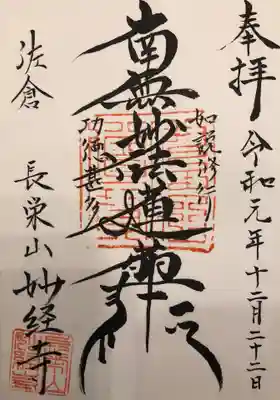 奉拝 令和元年十二月二十二日
如説修行
南無妙法蓮華経
功徳甚多
佐倉 長栄山妙経寺